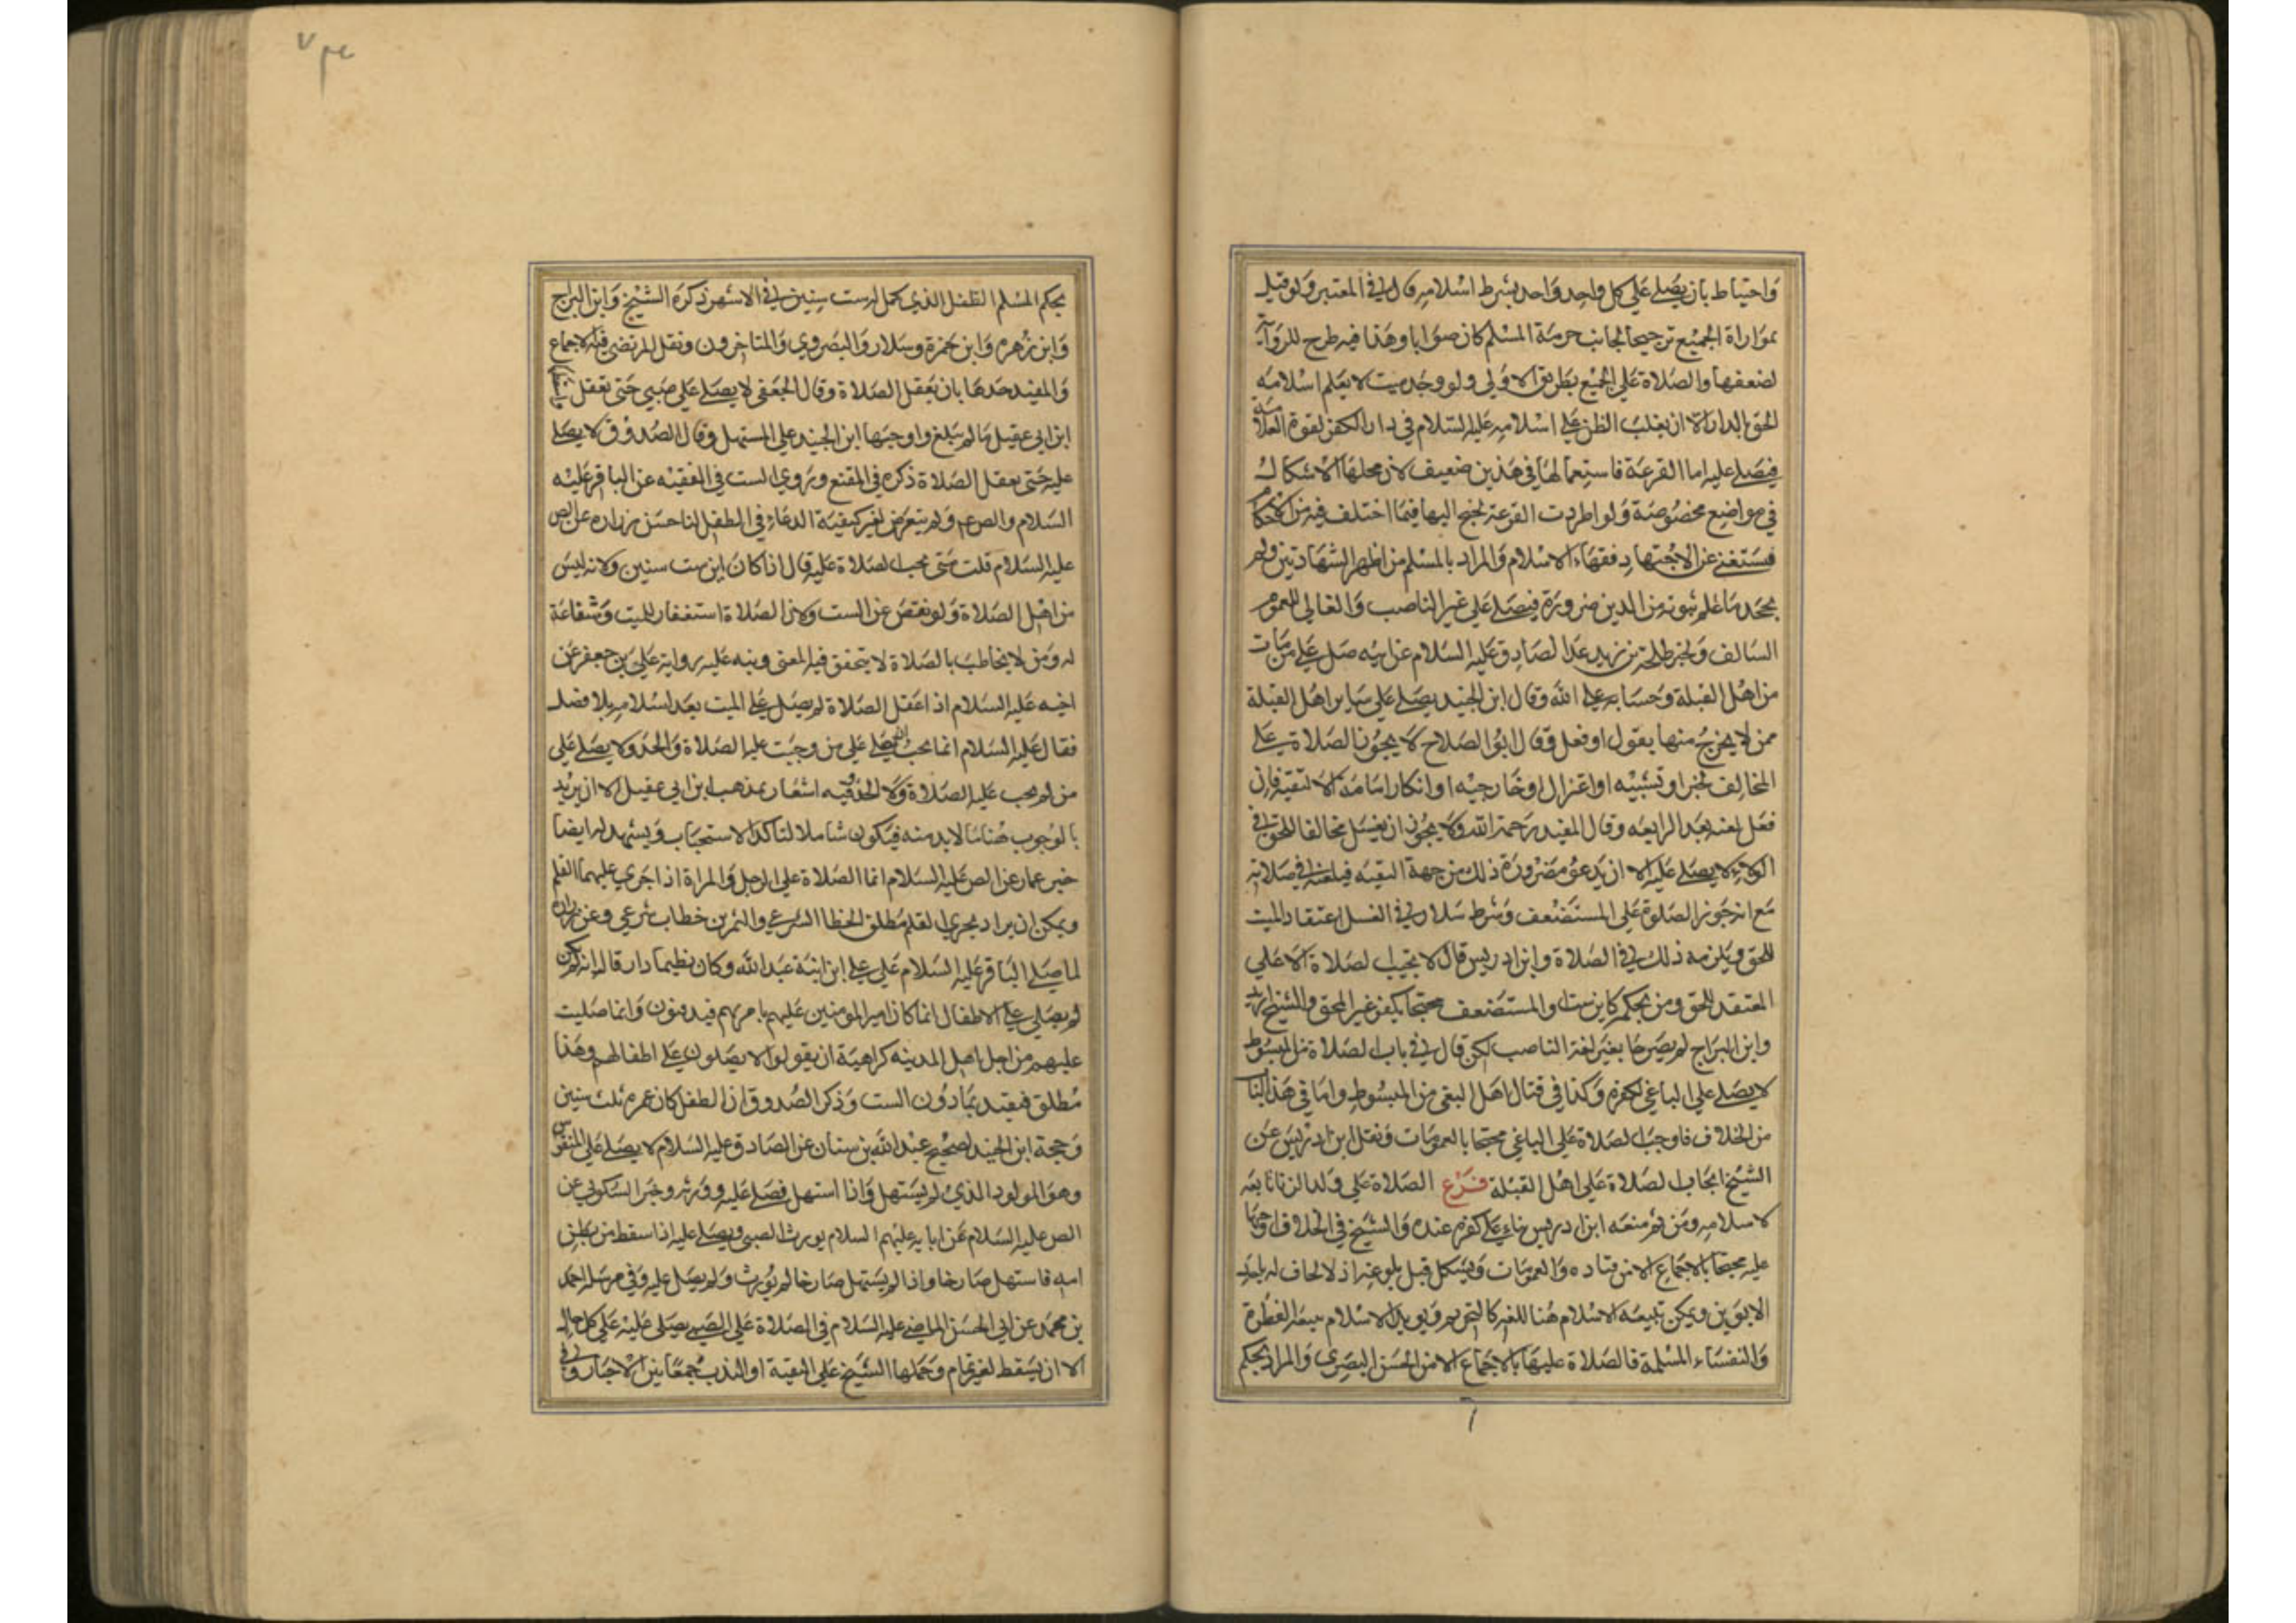 واحتياط بان يصلے علي كل واحد واحد بشرط اسلامه قال في المعتبر ولو قيل
بمواراة الجميع ترجيحا لجانب حرمة المسلم كان صوابا وهذا فيه طرح للرواية
لضعفها والصلاة علي الجميع بطريق الاولي ولو وجد ميت لا يعلم اسلامه
الحق بالدار الا ان يغلب الظن علي اسلامه عليه السلام في دار الكفر لقوة العلامة
فيصلے عليه اما القرعة فاستعمالها في هذين ضعيف لان محلها الاشكال
في مواضع مخصوصة ولو اطردت القرعة لجنح اليها فيما اختلف فيه من الاحكام
فيستغني عن الاجتهاد فقهاء الاسلام والمراد بالمسلم من اظهر الشهادتين ولم
يجحد ما علم ثبوته من الدين ضرورة فيصلے علي غير الناصب والغالي للعموم
السالف ولخبر طلحة بن زيد عن الصادق عليه السلام عن ابيه صل علي من مات
من اهل القبلة وحسابه علي الله وقال ابن الجنيد يصلے علي ساير اهل القبلة
ممن لا يخرج منها بقول او فعل وقال ابو الصلاح لا يجوز الصلاة علي
المخالف لجبر او تشبيه او اعتزال او خارجيه او انكار امامة الا لتقية فان
فعل لعنه بعد الرابعه وقال المفيد رحمة الله ولا يجوز ان يغسل مخالفا للحق في
الولاء ولا يصلے عليه الا ان يدعو ضرورة ذلك من جهة التقيه فيلعنه في صلاته
مع انه جوز الصلوة علي المستضعف وشرط سلار في الغسل اعتقاد الميت
للحق ويلزمه ذلك في الصلاة وابن ادريس قال لا تجب الصلاة الا علي
المعتقد للحق ومن بحكمه كابن ست والمستضعف محتجا بكفر غير المحق والشيخ
وابن البراج لم يصرحا بغير لعنة الناصب لكن قال في باب الصلاة من المبسوط
لا يصلے علي الباغي لكفره وكذا في قتال اهل البغي من المبسوط واما في هذا الباب
من الخلاف فاوجب الصلاة علي الباغي محتجا بالعمومات ونقل ابن ادريس عن
الشيخ ايجاب الصلاة علي اهل القبلة فرع الصلاة علي ولد الزنا تابعه
لاسلامه ومن ثم منعه ابن ادريس بناء علي كفره عنده والشيخ في الخلاف اوجبها
عليه محتجا بالاجماع الا من قتاده والعمومات ويشكل قبل بلوغه اذ لا لحاق له باحد
الابوين ويمكن تبعيه الاسلام هنا للغير كالتحريم ويويد الاسلام تبعه الفطرة
والنفساء المسلمة فالصلاة عليها بالاجماع الا من الحسن البصري والمراد بحكم
بحكم المسلم الطفل الذي كمل له ست سنين في الاشهر ذكره الشيخ وابن البراج
وابن زهره وابن حمزة وسلار والبصروي والمتاخرون ونقل المرتضي فيه الاجماع
والمفيد حدها بان يعقل الصلاة وقال الجعفي لا يصلے علي صبي حتي يعقل
ابن ابي عقيل ما لم يبلغ واوجبها ابن الجنيد علي المستهل وقال الصدوق لا يصلے
عليه حتي يعقل الصلاة ذكره في المقنع وروي الست في الفقيه عن الباقر عليه
السلام والص ع ولم يتعرض لغير كيفية الدعاء في الطفل لنا حسن زراره عن الص
عليه السلام قلت متي تجب الصلاة عليه قال اذا كان ابن ست سنين ولانه ليس
من اهل الصلاة ولو نقص عن الست ولان الصلاة استغفار للميت وشفاعة
له ومن لا يخاطب بالصلاة لا يتحقق فيه المعني ونبه عليه رواية علي بن جعفر عن
اخيه عليه السلام اذا عقل الصلاة لم يصل علي الميت بعد اسلامه بلا فصل
فقال عليه السلام انما يجب ان يصلے علي من وجبت عليه الصلاة والحد ولا يصلے علي
من لم يجب عليه الصلاة ولا الحد وفيه اشعار بمذهب ابن ابي عقيل الا ان يريد
بالوجوب هنا ما لابد منه فيكون شاملا لتاكد الاستحباب ويشهد له ايضا
خبر عمار عن الص عليه السلام انما الصلاة علي الرجل والمراة اذا جري عليهما القلم
ويمكن ان يراد بجري القلم مطلق الخطا الشرعي والتمرين خطاب شرعي وعن زرارة
لما صلے الباقر عليه السلام علي علي ابن ابنة عبد الله وكان فطيما دار قال انه لم يكن
لم يصلي علي الاطفال انما كان امير المومنين عليهم يامر بهم فيدفنون وانما صليت
عليهم من اجل اهل المدينه كراهية ان يقولوا لا يصلون علي اطفالهم وهذا
مطلق فيقيد بما دون الست وذكر الصدوق ان الطفل كان عمره ثلث سنين
وحجة ابن الجنيد صحيح عبد الله بن سنان عن الصادق عليه السلام لا يصلے علي المنفوس
وهو المولود الذي لم يستهل واذا استهل فصلے عليه وورثه وخبر السكوني عن
الص عليه السلام عن ابايه عليهم السلام يورث الصبي ويصلے عليه اذا سقط من بطن
امه فاستهل صارخا واذا لم يستهل صارخا لم يورث ولم يصل عليه وفي مرسل احمد
بن محمد عن ابي الحسن الماضي عليه السلام في الصلاة علي الصبي يصلي عليه علي كل حال
الا ان يسقط لغير تمام وحملها الشيخ علي التقية او الندب جمعا بين الاخبار وفي